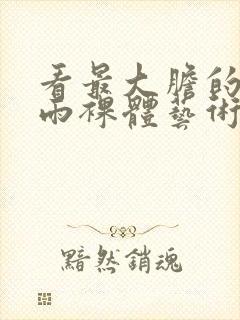 看最大膽的
雨裸體藝術
黯然銷魂